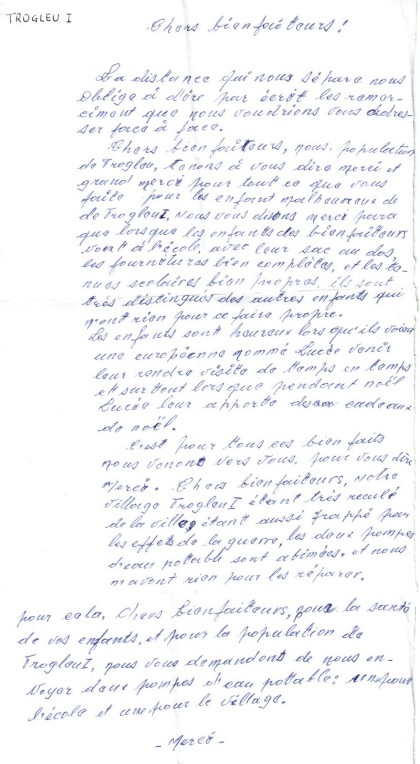 TROGLEU I
Chers bienfaiteurs!
La distance qui nous sépare nous
oblige à dire par écrit les remer-
ciment que nous voudrions vous adres-
ser face à face.
Chers bienfaiteurs, nous, population
de Trogleu, tenons à vous dire merci et
grand merci pour tout ce que vous
faite pour les enfant malheureux de
de Trogleu I, nous vous disons merci parce
que lorsque les enfants des bienfaiteurs
vont à l'école, avec leur sac au dos,
les fournitures bien complètes, et les te-
nues scolaires bien propres, ils sont
très distingués des autres enfants qui
n'ont rien pour ce faire propre.
Les enfants sont heureux lors qu'ils voient
une européenne nommé Lucie venir
leur rendre visite de temps en temps
et surtout lors que pendant noël
Lucie leur apporte des cadeaux
de noël.
C'est pour tous ces bien faits
nous venons vers vous, pour vous dire
Merci. Chers bienfaiteurs, notre
village Trogleu I étant très reculé
de la ville, étant aussi frappé par
les effets de la guerre, les deux pompes
d'eau potable sont abimées. et nous
n'avont rien pour les réparer.
pour cela. Chers bienfaiteurs, pour la santé
de vos enfants, et pour la population de
Trogleu I, nous vous demandont de nous en-
voyer deux pompes d'eau potable: une pour
l'école et une pour le village.
- Merci -